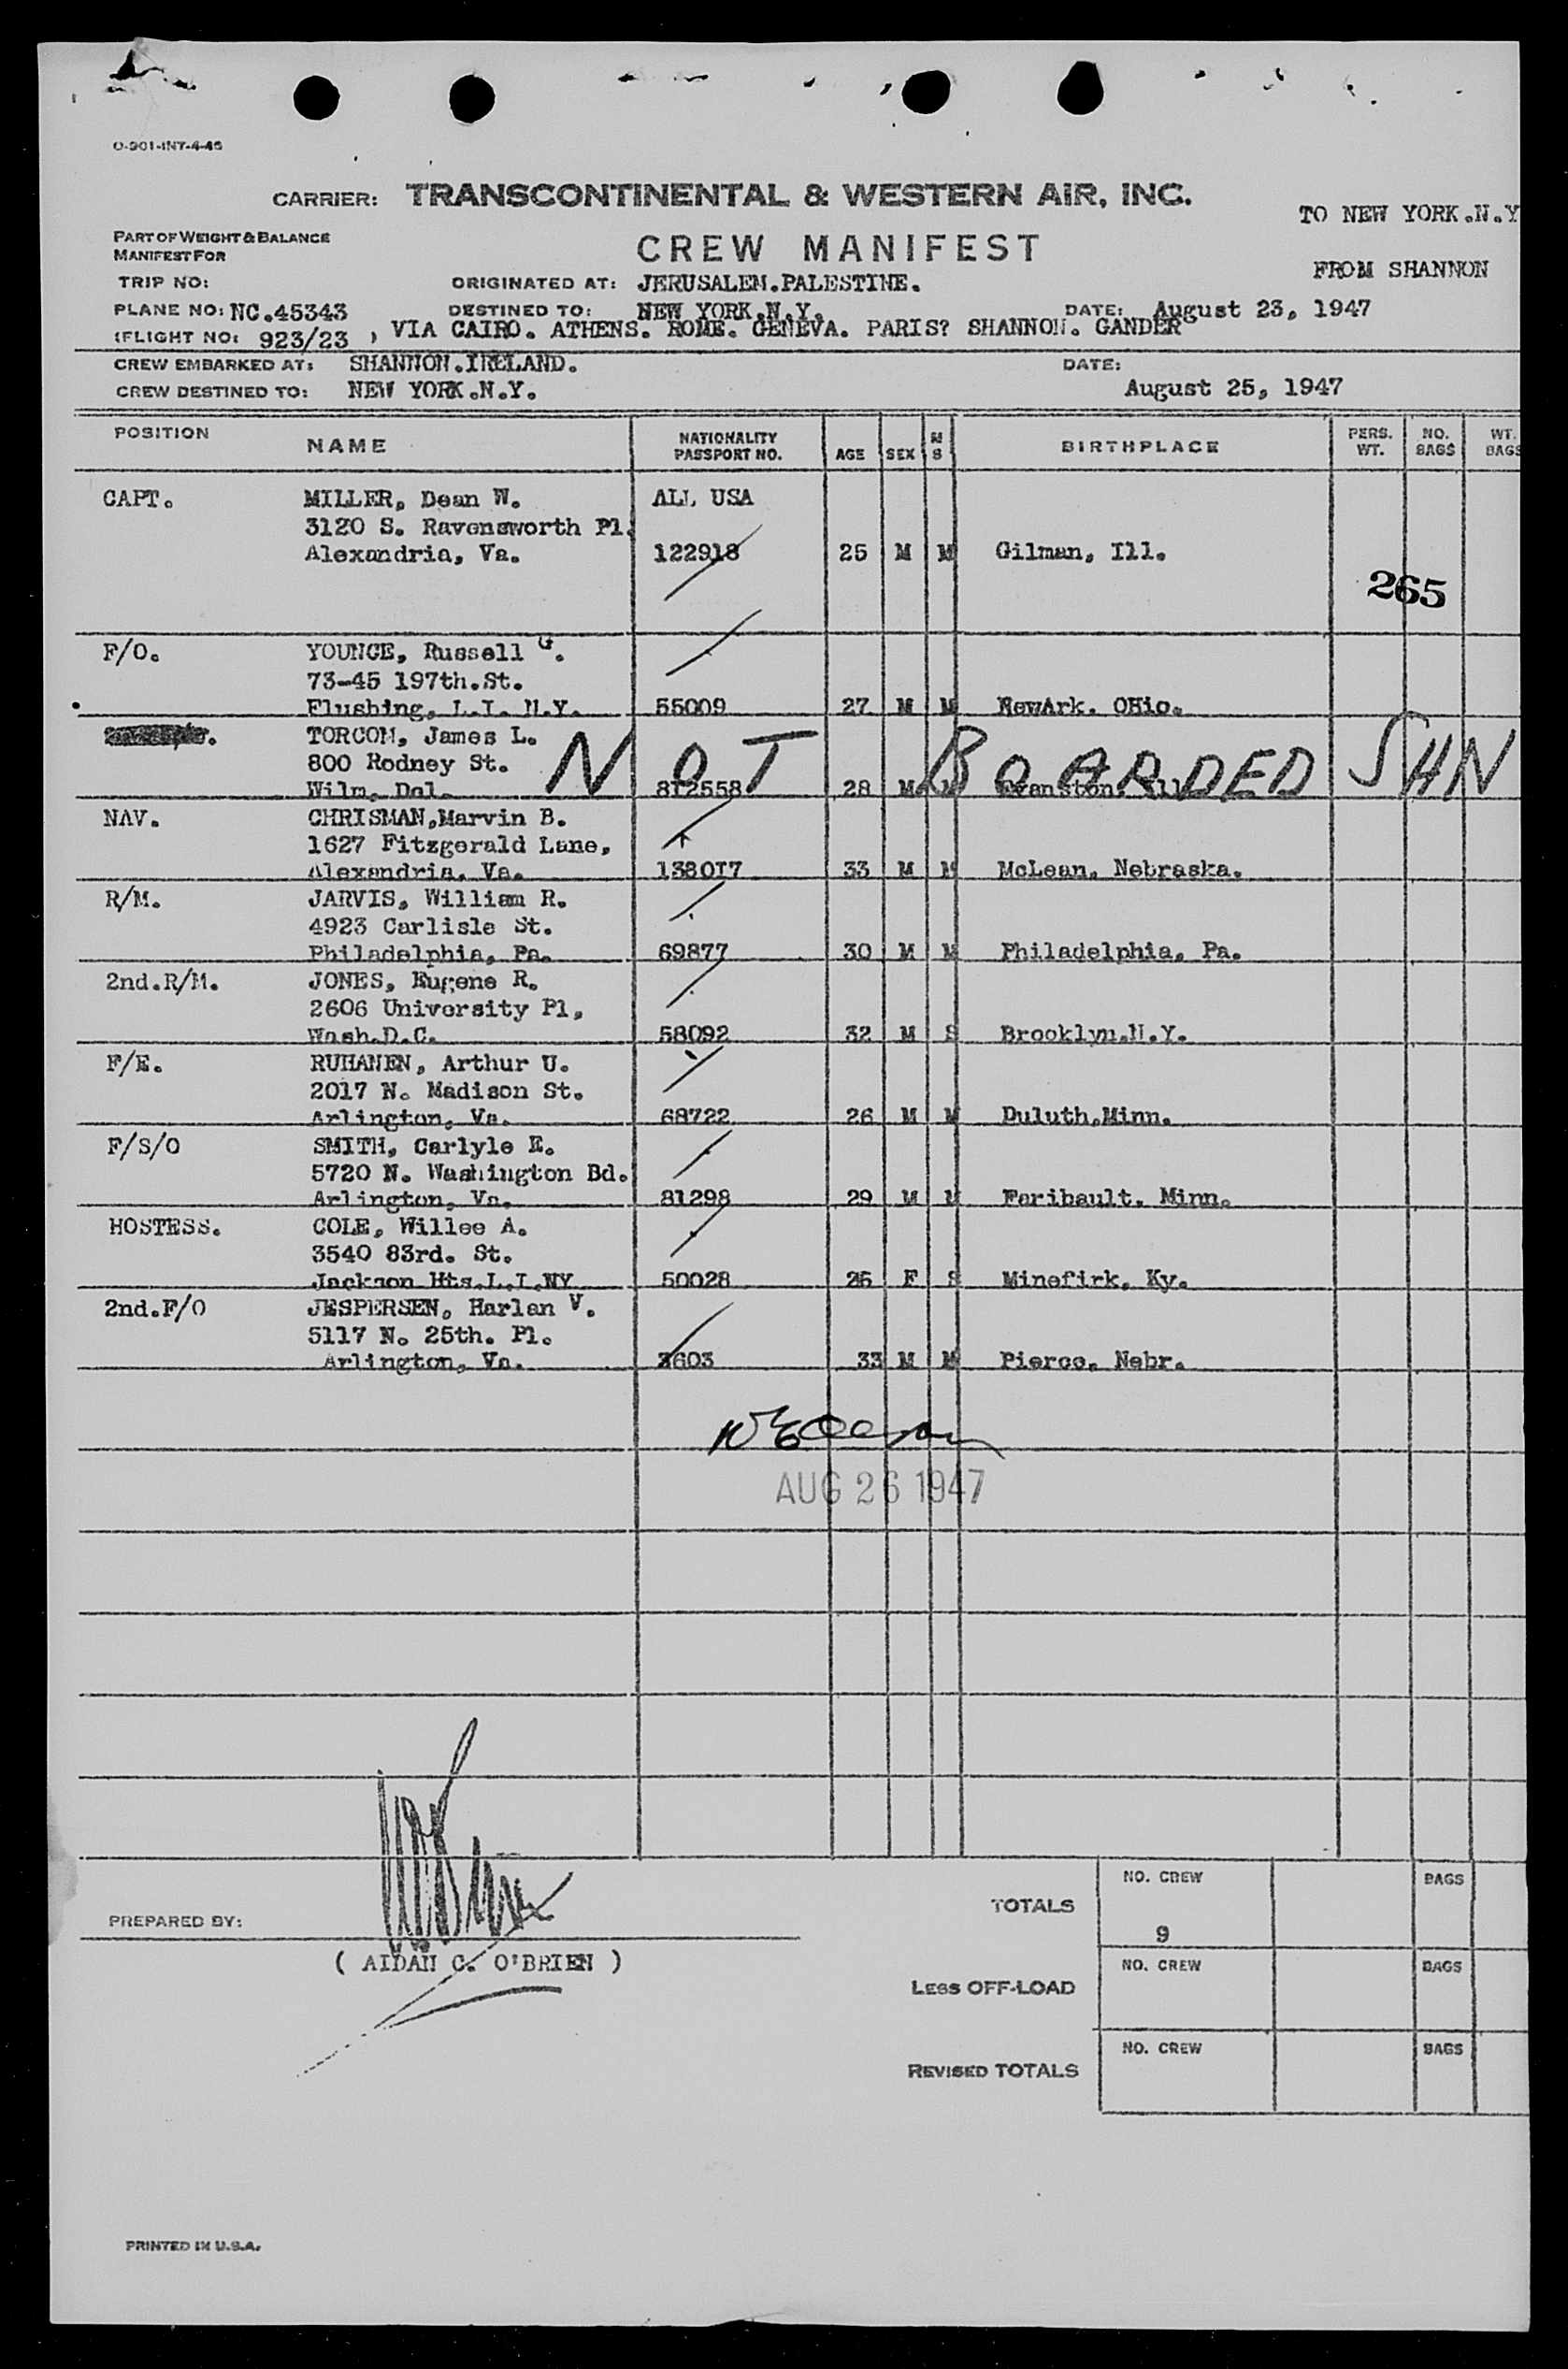 O-901-INT-4-46
CARRIER: TRANSCONTINENTAL & WESTERN AIR, INC.
TO NEW YORK.N.Y
PART OF WEIGHT & BALANCE
MANIFEST FOR
CREW MANIFEST
FROM SHANNON
TRIP NO: ORIGINATED AT: JERUSALEM.PALESTINE.
PLANE NO: NC.45343 DESTINED TO: NEW YORK.N.Y. DATE: August 23, 1947
(FLIGHT NO: 923/23 ) VIA CAIRO. ATHENS. ROME. GENEVA. PARIS? SHANNON. GANDER
CREW EMBARKED AT: SHANNON.IRELAND. DATE:
CREW DESTINED TO: NEW YORK.N.Y. August 25, 1947
POSITION NAME NATIONALITY PASSPORT NO. AGE SEX M S BIRTHPLACE PERS. WT. NO. BAGS WT. BAGS
CAPT. MILLER, Dean W. ALL USA
3120 S. Ravensworth Pl.
Alexandria, Va. 122918 25 M M Gilman, Ill.
265
F/O. YOUNCE, Russell G.
73-45 197th.St.
Flushing, L.I. N.Y. 55009 27 M M NewArk. OHio.
TORCOM, James L.
800 Rodney St. NOT BOARDED SHN
Wilm. Del. 812558 28 M M Evanston, Ill
NAV. CHRISMAN,Marvin B.
1627 Fitzgerald Lane,
Alexandria, Va. 138017 33 M M McLean, Nebraska.
R/M. JARVIS, William R.
4923 Carlisle St.
Philadelphia, Pa. 69877 30 M M Philadelphia, Pa.
2nd.R/M. JONES, Eugene R.
2606 University Pl,
Wash.D.C. 58092 32 M S Brooklyn.N.Y.
F/E. RUHANEN, Arthur U.
2017 N. Madison St.
Arlington, Va. 68722 26 M M Duluth,Minn.
F/S/O SMITH, Carlyle E.
5720 N. Washington Bd.
Arlington, Va. 81298 29 M M Faribault, Minn.
HOSTESS. COLE, Willee A.
3540 83rd. St.
Jackson Hts.L.I.NY 50028 26 F S Minefirk, Ky.
2nd.F/O JESPERSEN, Harlan V.
5117 N. 25th. Pl.
Arlington, Va. 3603 33 M M Pierce, Nebr.
AUG 26 1947
NO. CREW BAGS
TOTALS
PREPARED BY:
9
( AIDAN C. O'BRIEN )
NO. CREW BAGS
LESS OFF-LOAD
NO. CREW BAGS
REVISED TOTALS
PRINTED IN U.S.A.